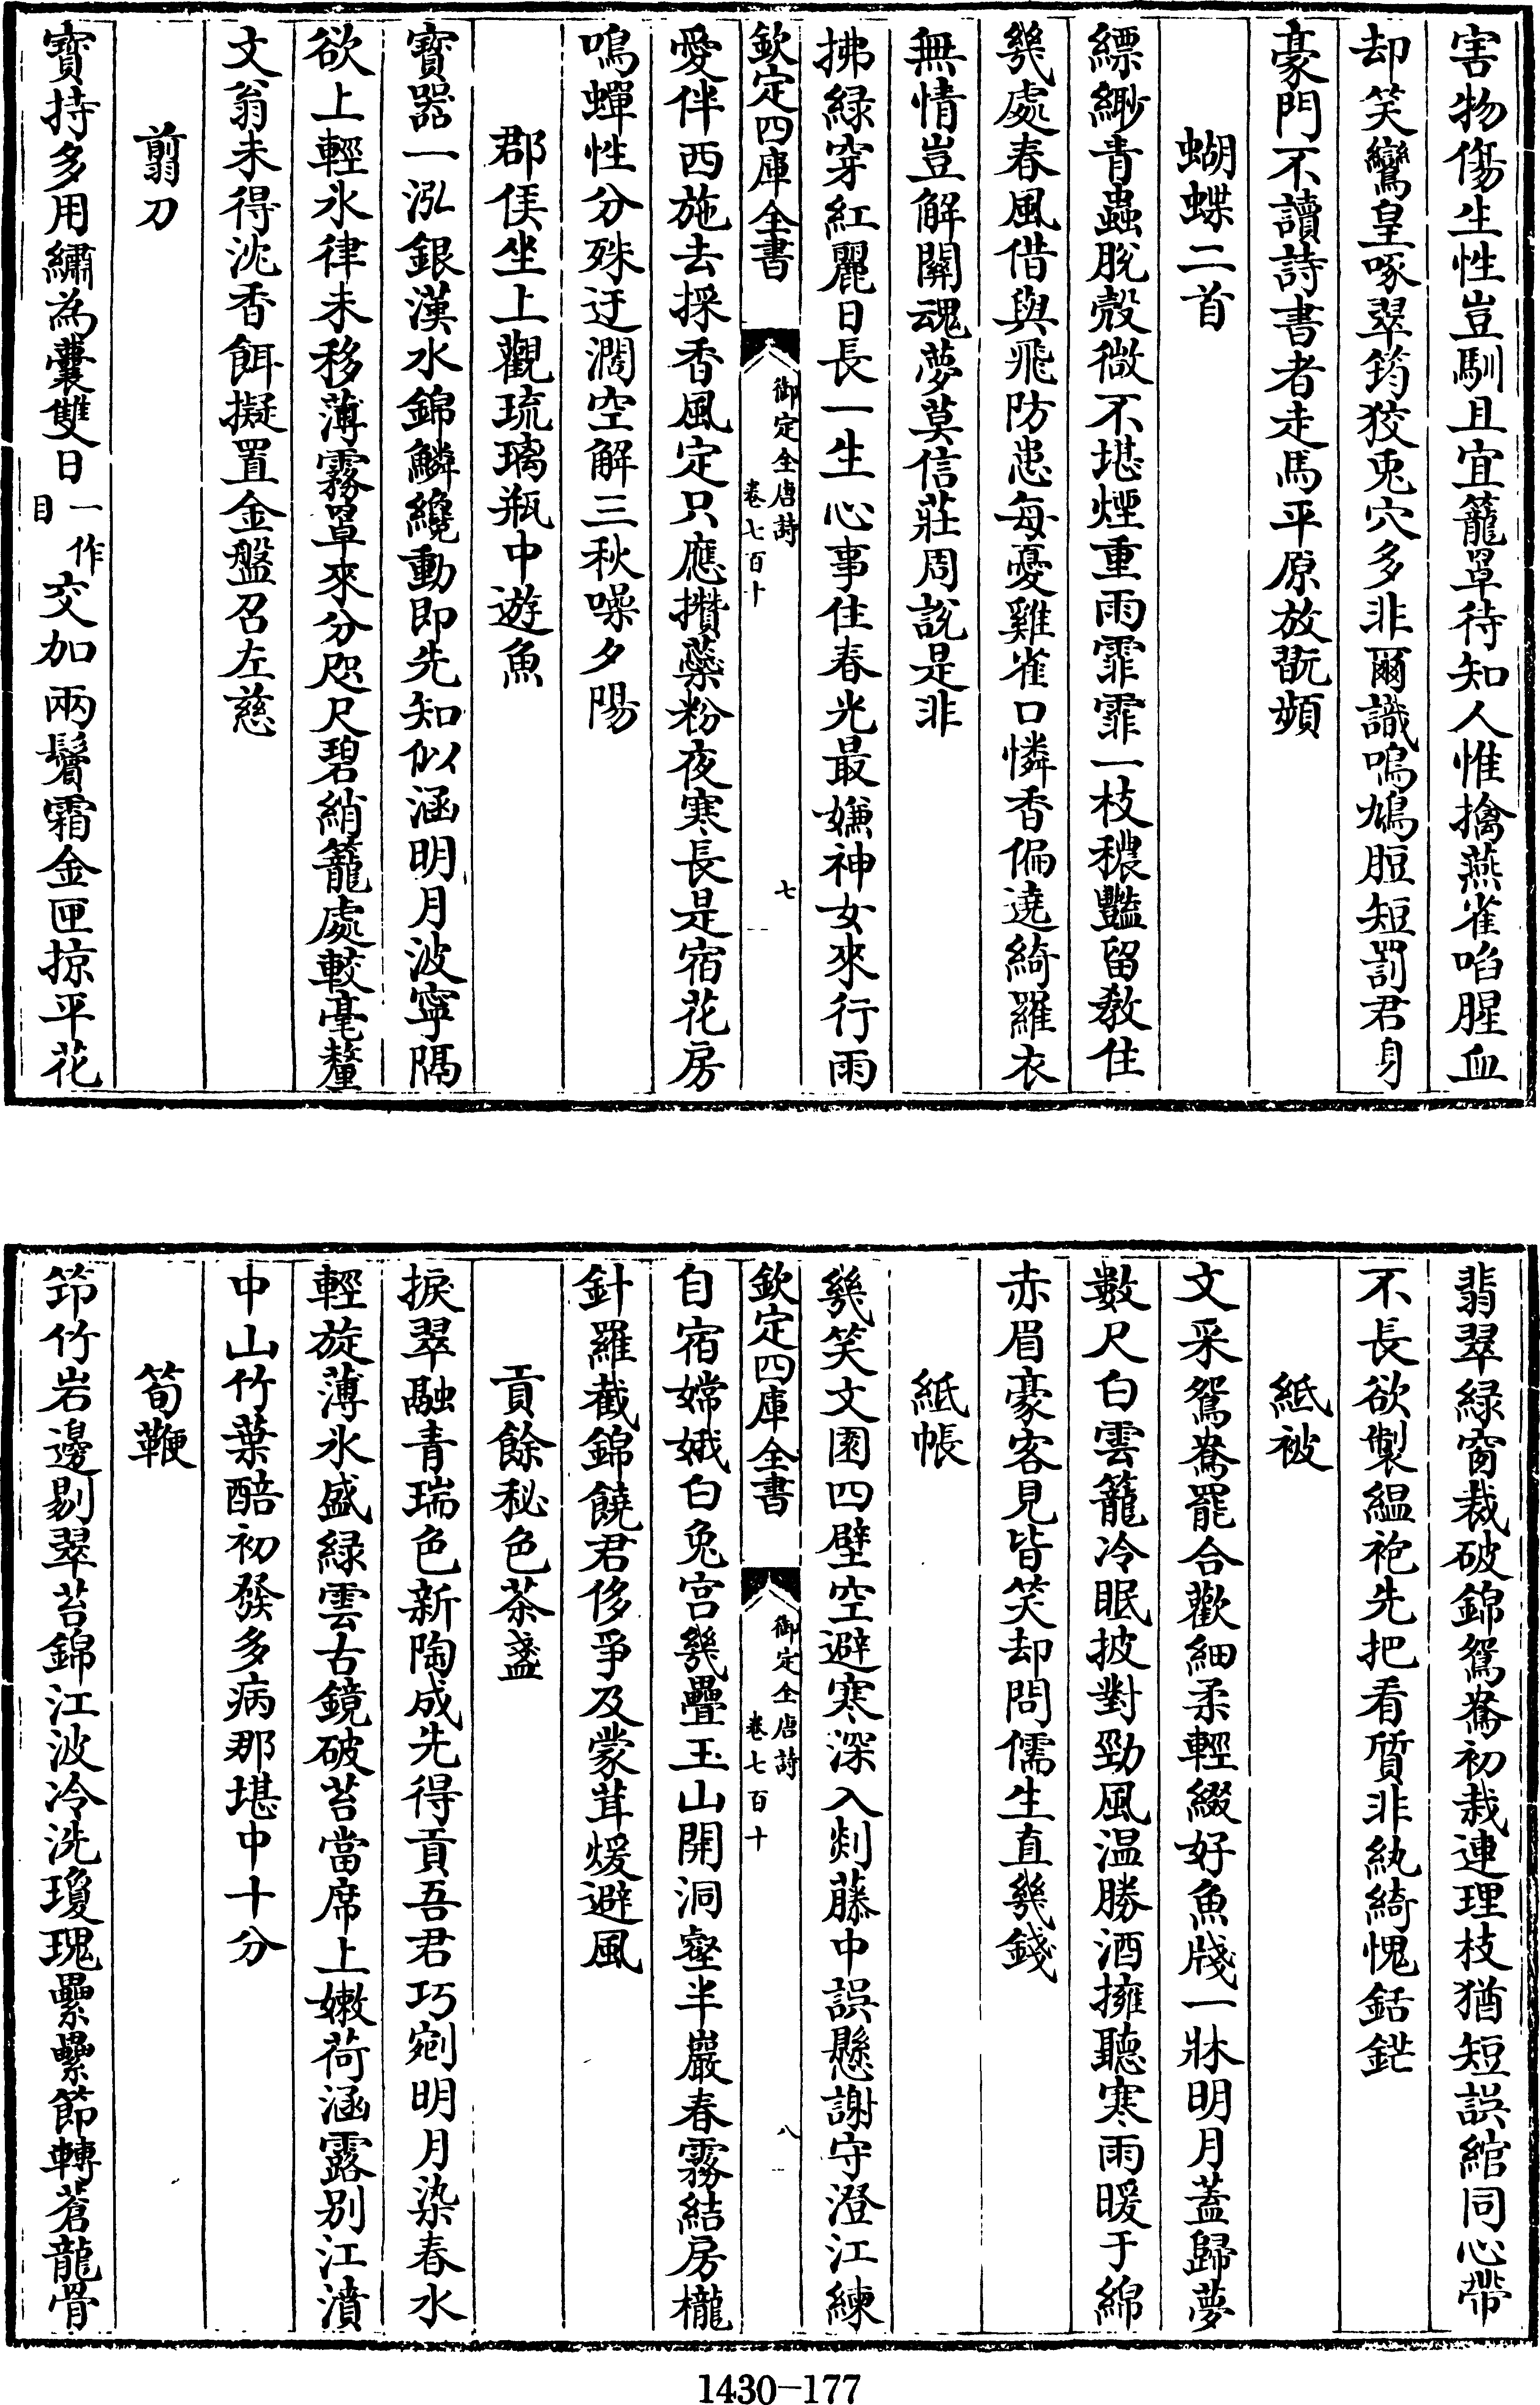 害物傷生性豈馴且宜籠罩待知人惟擒燕雀啗腥血
却笑鸞皇啄翠筠狡兎穴多非爾識鳴鳩脰短罰君身
豪門不讀詩書者走馬平原放翫頻
蝴蝶二首
縹緲青蟲脫殻微不堪煙重雨霏霏一枝穠豔留教住
幾處春風借與飛防患每憂雞雀口憐香偏遶綺羅衣
無情豈解關魂夢莫信莊周說是非
拂緑穿紅麗日長一生心事住春光最嫌神女來行雨
欽定四庫全書 御定全唐詩 卷七百十 七
愛伴西施去採香風定只應攢蘂粉夜寒長是宿花房
鳴蟬性分殊迂濶空解三秋噪夕陽
郡侯坐上觀琉璃瓶中遊魚
寳器一泓銀漢水錦鱗纔動即先知似涵明月波寧隔
欲上輕氷律未移薄霧罩來分咫尺碧綃籠處較毫釐
文翁未得沈香餌擬置金盤召左慈
翦刀
寳持多用繡為囊雙日一作目交加兩鬢霜金匣掠平花
翡翠緑窗裁破錦鴛鴦初裁連理枝猶短誤綰同心帶
不長欲製緼袍先把看質非紈綺愧銛鋩
紙被
文采鴛鴦罷合歡細柔輕綴好魚牋一牀明月蓋歸夢
數尺白雲籠冷眠披對勁風温勝酒擁聽寒雨暖于綿
赤眉豪客見皆笑却問儒生直幾錢
紙帳
幾笑文園四壁空避寒深入剡藤中誤懸謝守澄江練
欽定四庫全書 御定全唐詩 卷七百十 八
自宿嫦娥白兔宫幾疊玉山開洞壑半巖春霧結房櫳
針羅截錦饒君侈爭及蒙茸煖避風
貢餘秘色茶盞
捩翠融青瑞色新陶成先得貢吾君巧剜明月染春水
輕旋薄氷盛緑雲古鏡破苔當席上嫩荷涵露别江濆
中山竹葉醅初發多病那堪中十分
筍鞭
笻竹岩邊剔翠苔錦江波冷洗瓊瑰纍纍節轉蒼龍骨
1430-177